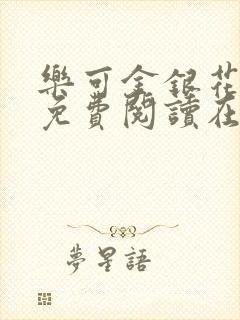 樂可金銀花
免費閱讀在
夢星語